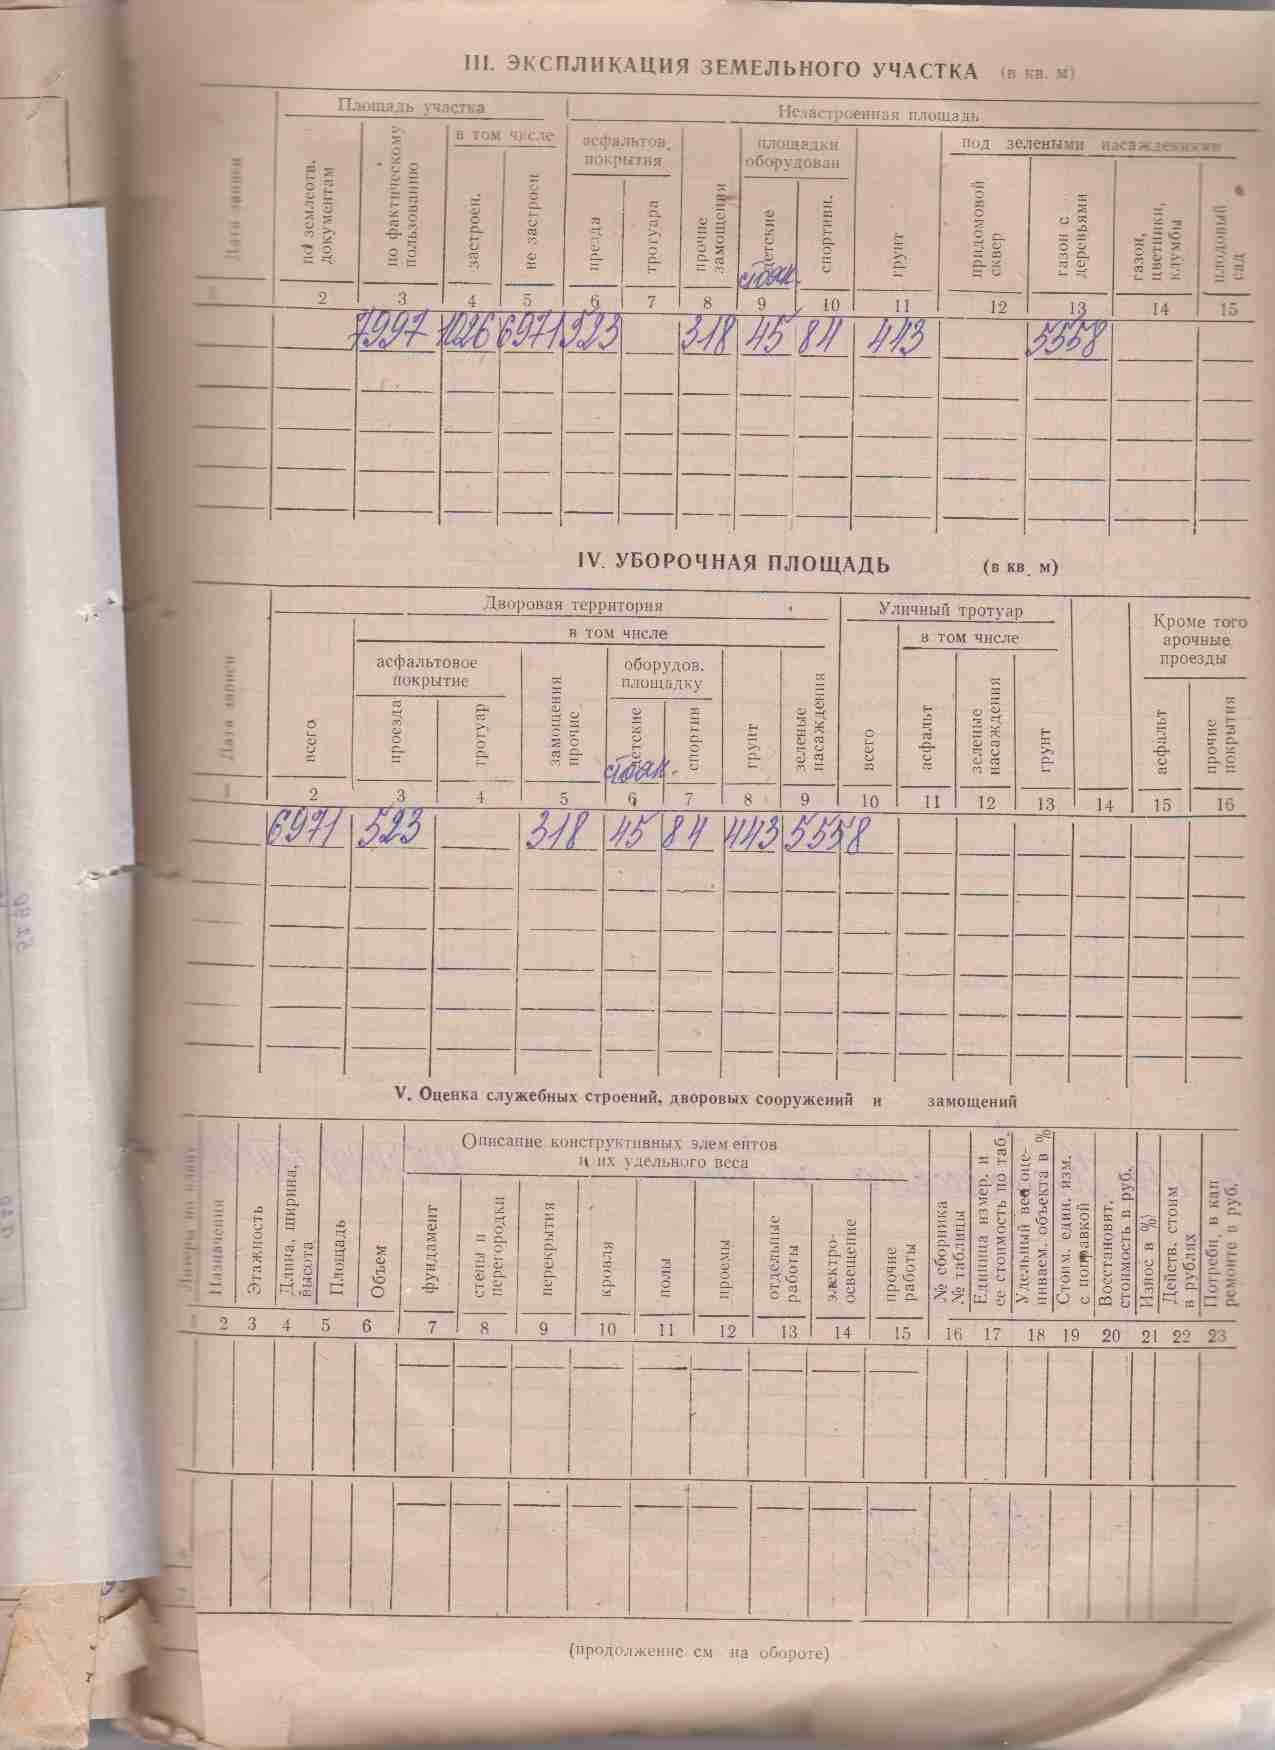 III. ЭКСПЛИКАЦИЯ ЗЕМЕЛЬНОГО УЧАСТКА (в кв. м)
Площадь участка
Незастроенная площадь
в том числе
асфальтов. покрытия
площадки оборудован
под зелеными насаждениями
Дата записи
по землеотв. документам
по фактическому пользованию
застроен.
не застроен
проезда
тротуара
прочие замощения
детские
стоян.
спортивн.
грунт
придомовой сквер
газон с деревьями
газон, цветники, клумбы
плодовый сад
2 3 4 5 6 7 8 9 10 11 12 13 14 15
7997 1026 6971 523 318 45 84 443 5558
IV. УБОРОЧНАЯ ПЛОЩАДЬ (в кв. м)
Дворовая территория
Уличный тротуар
Кроме того арочные проезды
в том числе
в том числе
асфальтовое покрытие
оборудов. площадку
Дата записи
всего
проезда
тротуар
замощения прочие
детские
стоян.
спортив
грунт
зеленые насаждения
всего
асфальт
зеленые насаждения
грунт
асфальт
прочие покрытия
2 3 4 5 6 7 8 9 10 11 12 13 14 15 16
6971 523 318 45 84 443 5558
V. Оценка служебных строений, дворовых сооружений и замощений
Описание конструктивных элементов
и их удельного веса
Назначения
Этажность
Длина, ширина, высота
Площадь
Объем
фундамент
стены и перегородки
перекрытия
кровля
полы
проемы
отдельные работы
электро- освещение
прочие работы
№ сборника № таблицы
Единица измер. и ее стоимость по таб.
Удельный вес оце- ниваем. объекта в %
Стоим. един. изм. с поправкой
Восстановит. стоимость в руб.
Износ в %
Действ. стоим в рублях
Потребн. в кап ремонте в руб.
2 3 4 5 6 7 8 9 10 11 12 13 14 15 16 17 18 19 20 21 22 23
(продолжение см на обороте)